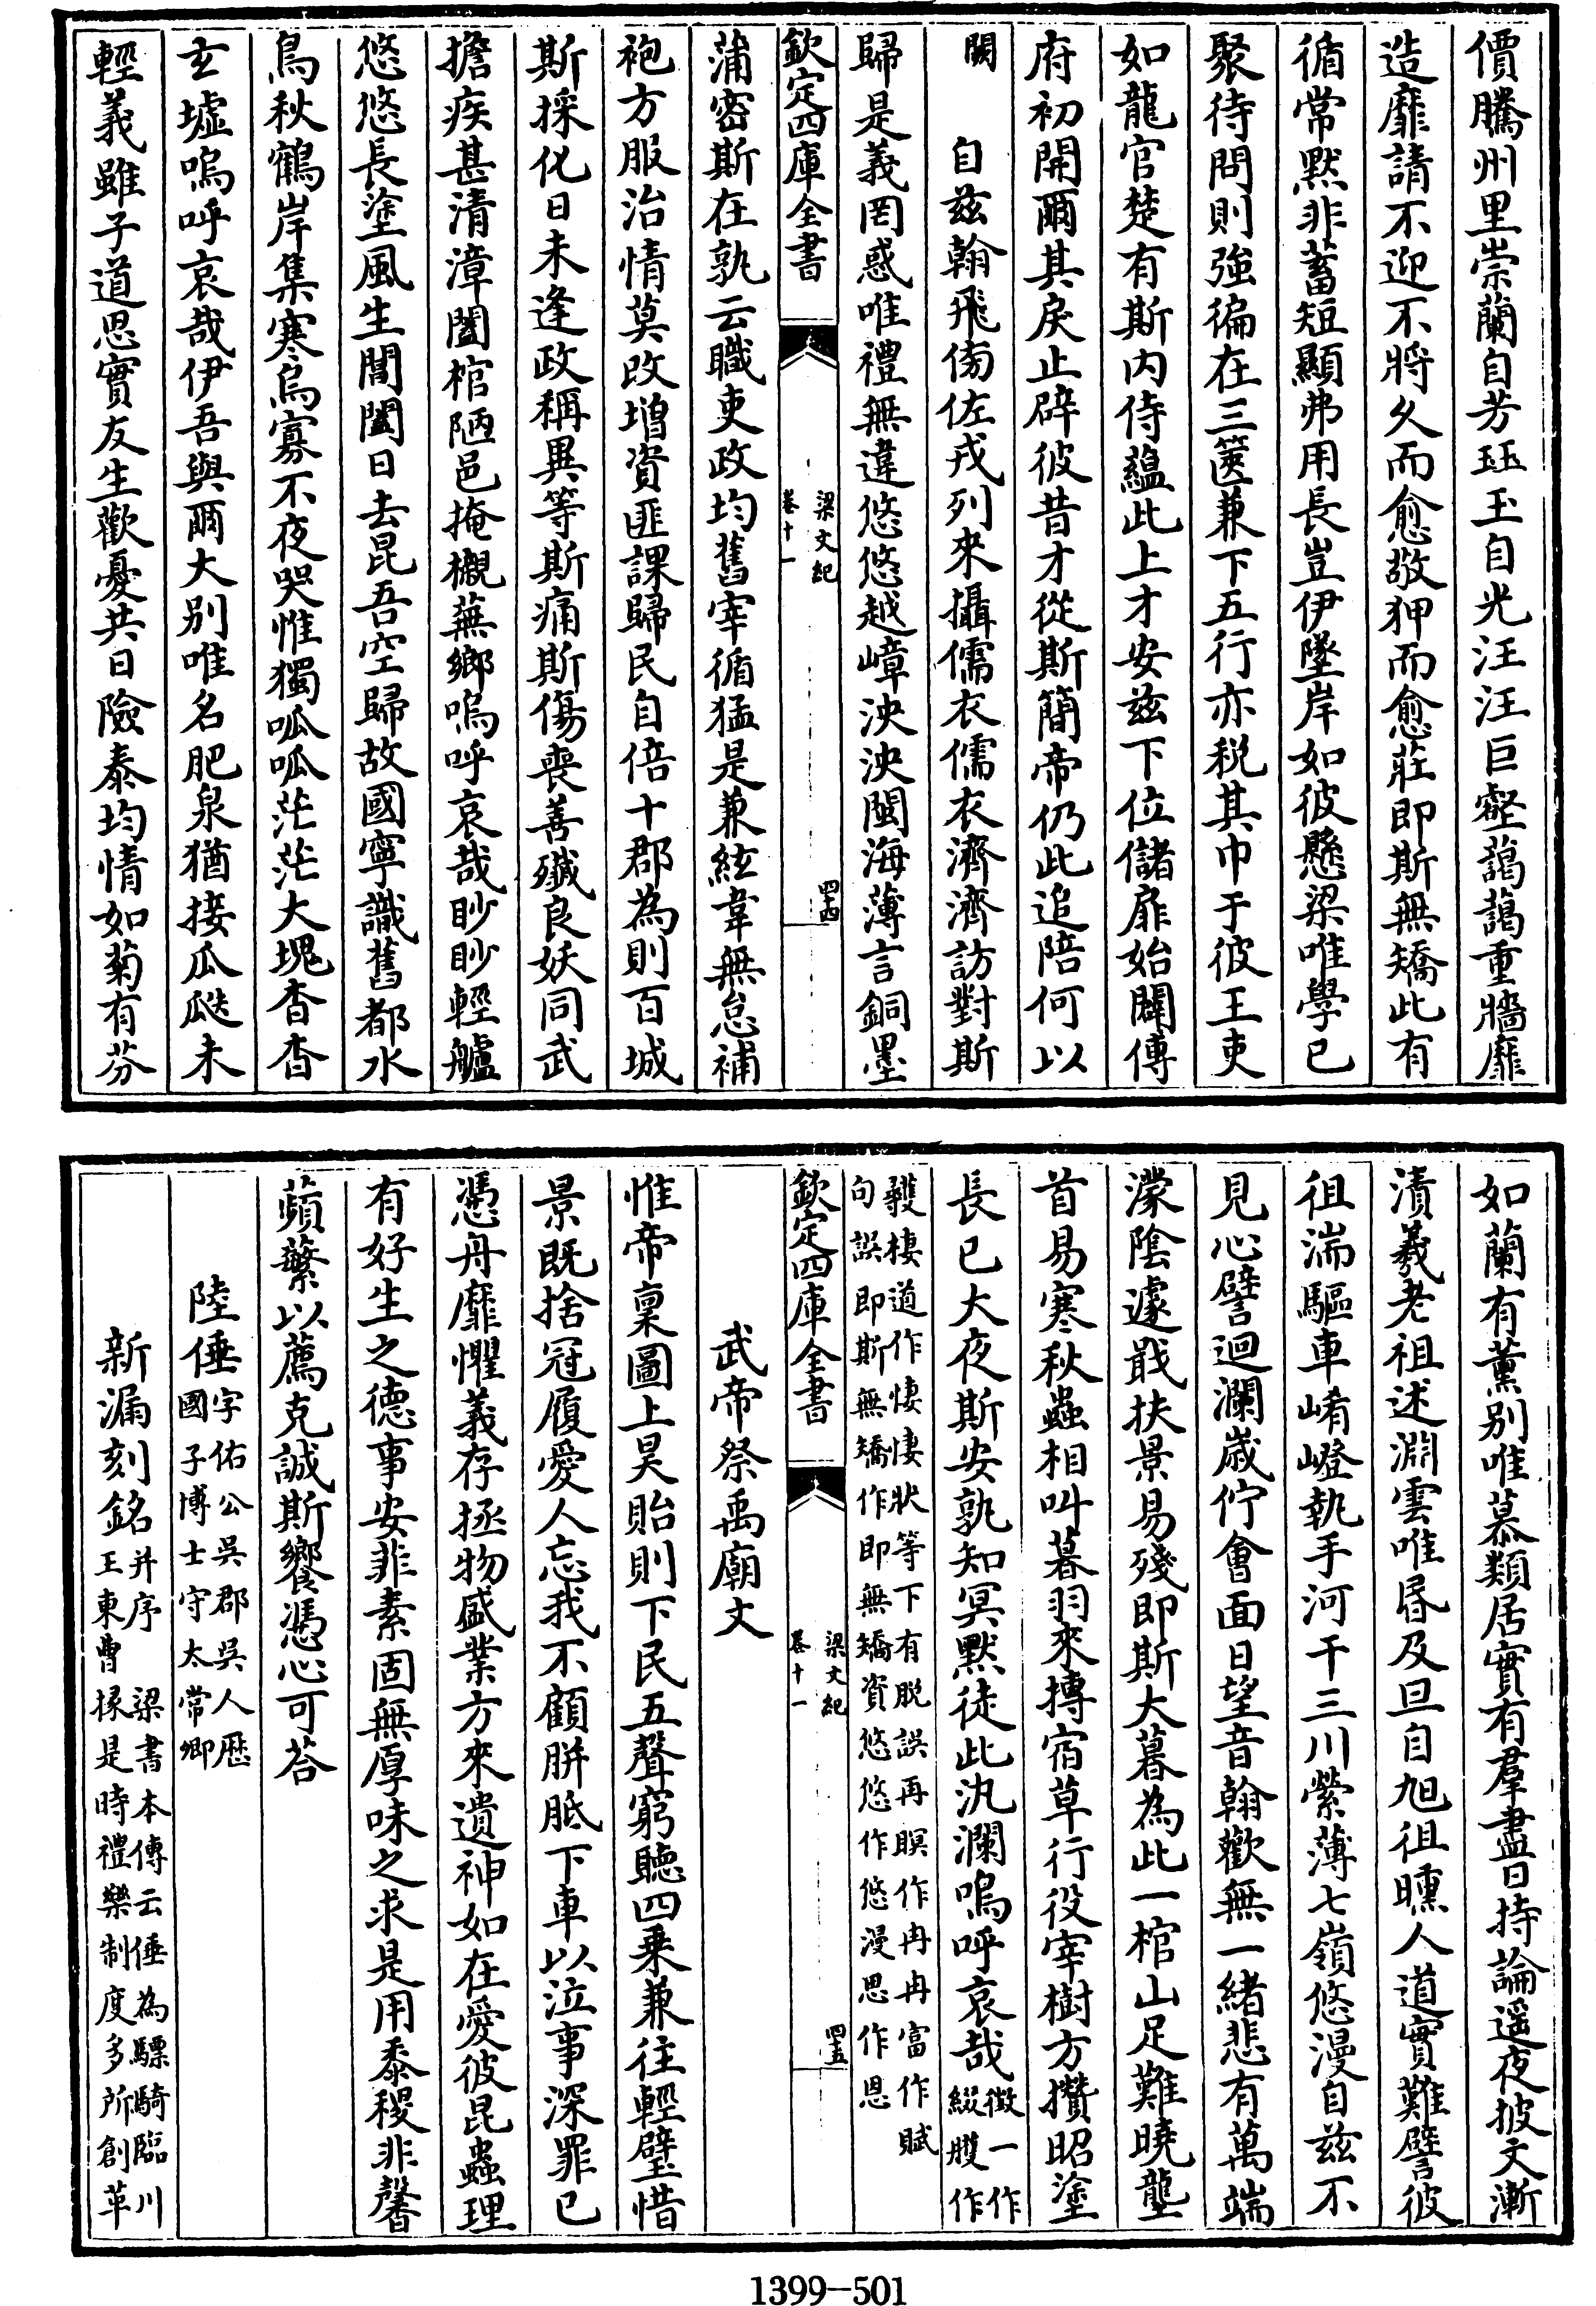 價騰州里崇蘭自芳珏玉自光汪汪巨壑藹藹重牆靡
造靡請不迎不將久而愈敬狎而愈莊即斯無矯此有
循常黙非蓄短顯弗用長豈伊墜岸如彼懸梁唯學已
聚待問則強徧在三篋兼下五行亦税其巾于彼王吏
如龍官楚有斯内侍藴此上才安兹下位儲扉始闢傅
府初開爾其戾止辟彼昔才從斯簡帝仍此追陪何以
闕　自兹翰飛傍佐戎列來攝儒衣儒衣濟濟訪對斯
歸是義罔惑唯禮無違悠悠越嶂泱泱閩海薄言銅墨
欽定四庫全書
梁文紀
卷十一
四十四
蒲密斯在孰云職吏政均舊宰循猛是兼絃韋無怠補
袍方服治情莫改增資匪課歸民自倍十郡為則百城
斯採化日未逢政稱異等斯痛斯傷喪善殲良妖同武
擔疾甚清漳闔棺陋邑掩櫬蕪鄉嗚呼哀哉眇眇輕艫
悠悠長塗風生閶闔日去昆吾空歸故國寧識舊都水
鳥秋鶴岸集寒烏寡不夜哭惟獨呱呱茫茫大塊杳杳
玄墟嗚呼哀哉伊吾與爾大别唯名肥泉猶接瓜瓞未
輕義雖子道恩實友生歡憂共日險泰均情如菊有芬
如蘭有薰别唯慕類居實有羣盡日持論遥夜披文漸
漬羲老祖述淵雲唯昬及旦自旭徂曛人道實難譬彼
徂湍驅車崤嶝執手河干三川縈薄七嶺悠漫自兹不
見心譬迴瀾歲佇會面日望音翰歡無一緒悲有萬端
濛陰遽戢扶景易殘即斯大暮為此一棺山足難曉壟
首易寒秋蟲相叫暮羽來摶宿草行役宰樹方攢昭塗
長已大夜斯安孰知冥黙徒此汍瀾嗚呼哀哉徽一作綴膄作
䕶棲道作悽悽狀等下有脱誤再瞑作冉冉富作賦
句誤即斯無矯作即無矯資悠悠作悠漫思作恩
欽定四庫全書
梁文紀
卷十一
四十五
武帝祭禹廟文
惟帝稟圖上昊貽則下民五聲窮聽四乗兼往輕璧惜
景既捨冠履愛人忘我不顧胼胝下車以泣事深罪已
憑舟靡懼義存拯物盛業方來遺神如在愛彼昆蟲理
有好生之德事安菲素固無厚味之求是用黍稷非馨
蘋蘩以薦克誠斯饗憑心可荅
陸倕字佑公吳郡吳人歴國子博士守太常卿
新漏刻銘并序　梁書本傳云倕為驃騎臨川王東曹掾是時禮樂制度多所創革
1399-501